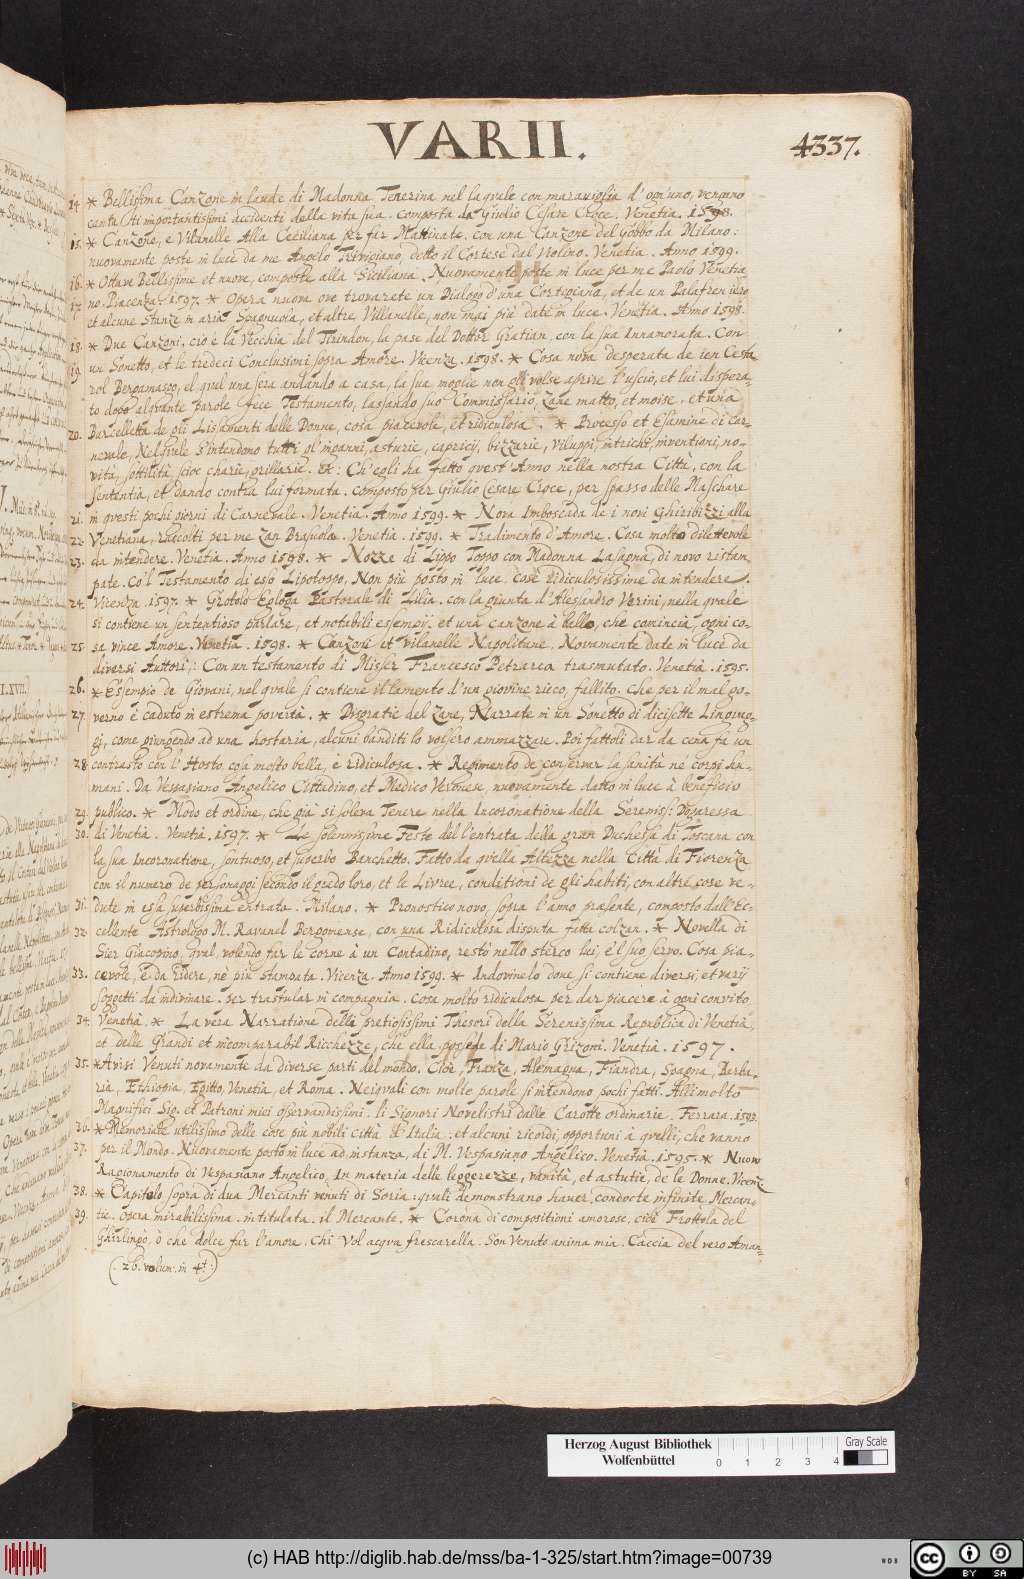 VARII.
4337.
14. * Bellissima Canzone in laude di Madonna Tenerina nel laquale con marauiglia d'ogn'uno, vengono
cantati importantissimi accidenti della vita sua. composta da Giulio Cesare Croce. Venetia. 1598.
15. * Canzone, e Vilanelle Alla Ceciliana per far Mattinate. con una Canzone del Gobbo da Milano:
nuovamente poste in luce da me Angelo Trivigiano, detto il Cortese dal Violino. Venetia. Anno 1599.
16. * Ottave Bellissime et nuove, composte alla Siciliana. Nuovamente poste in luce per me Paolo Venetia
17. no. Piacenza. 1597. * Opera nuova ove trovarete un Dialogo d'una Cortigiana, et de un Palafreniero
et alcune Stanze in aria Spagnuola, et altre Villanelle, non mai più date in luce. Venetia. Anno 1598.
18. * Due Canzoni, cio è la Vecchia del Tirindon, la pase del Dottor Gratian, con la sua Innamorata. Con
19. un Sonetto, et le tredeci Conclusioni sopra Amore. Vicenza. 1598. * Cosa nova desperata de ien Cesta
rol Bergamasco, el qual una sera andando a casa, la sua moglie non gli volse aprire l'uscio, et lui dispera-
to dopo alquante parole fece Testamento, lassando suo Commissario, Zane matto, et moise. et una
20. Barcelletta de gli Lisiamenti delle Donne, cosa piacevole, et ridiculosa. * Processo et Esamine di Car-
nevale, Nel quale s'intendono tutti gl'inganni, asturie, capricij, bizzarie, viluppi, intrichi, inventioni, no-
vità, sottilità, scioccharie, grillarie. &: Ch'egli ha fatto quest'Anno nella nostra Città, con la
sententia, et bando contra lui formata. composto per Giulio Cesare Croce, per spasso delle Maschare
21. in questi pochi giorni di Carnevale. Venetia. Anno 1599. * Nova Imboscada de i noni Ghiribizzi alla
22. Venetiana, raccolti per me Zan Brasuola. Venetia. 1599. * Tradimento d'Amore. Cosa molto dilettevole
23. da intendere. Venetia. Anno 1598. * Nozze di Lippo Toppo con Madonna Lasagna, di novo ristam-
pate. Co'l Testamento di esso Lipotoppo, Non più posto in luce. cose ridiculosissime da intendere.
24. Vicenza. 1597. * Grotolo Egloga Pastorale di Lilia. con la giunta d'Alessandro Verini, nella quale
si contiene un sententioso parlare, et notabili essempij. et una canzone à ballo, che comincia, ogni co-
25. sa vince Amore. Venetia. 1598. * Canzoni et vilanelle Napolitane. Novamente date in luce da
diversi Auttori: Con un testamento di Misser Francesco Petrarca trasmutato. Venetia. 1595.
26. * Essempio de Giovani, nel quale si contiene il lamento d'un giovine ricco, fallito. che per il mal go-
27. verno è caduto in estrema povertà. * Disgratie del Zane, Narrate in un Sonetto di dicisette Linguag-
gi, come giungendo ad una hostaria, alcuni banditi lo volsero ammazzare. Poi fattoli dar da cena fà un
28. contrasto con l'Hosto, cosa molto bella, e ridiculosa. * Regimento de conservar la sanità ne corpi hu-
mani. Da Vespasiano Angelico Cittadino, et Medico Veronese, nuovamente datto in luce à beneficio
29. publico. * Modo et ordine, che già si soleva Tenere nella Incoronatione della Sereniss: Dogaressa
30. di Venetia. Venetia. 1597. * Le solennissime Feste del l'entrata della gran Duchessa di Toscana con
la sua Incoronatione, sontuoso, et superbo Banchetto. Fatto da quella Altezza nella Città di Fiorenza
con il numero de personaggi secondo il grado loro, et le Livree, conditioni de gli habiti, con altre cose ve-
31. dute in essa superbissima entrata. Milano. * Pronostico novo, sopra l'anno præsente, composto dall'Ec-
32. cellente Astrologo M. Ravanel Bergomense, con una Ridiculosa disputa fatta colzen. * Novella di
Sier Giacopino, qual, volendo far le corne à un Contadino, restò nello sterco lui, e'l suo servo. Cosa pia-
33. cevole, e da ridere, nè più stampata. Vicenza. Anno 1599. * Indovinelo doue si contiene diversi, et varij
soggetti da indivinare. per trastular in compagnia. cosa molto ridiculosa per dar piacere à ogni convito
34. Venetia. * La vera Narratione delli pretiosissimi Thesori della Serenissima Republica di Venetia,
et delle Grandi et incomparabil Ricchezze, che ella possede di Mario Grizoni. Venetia. 1597.
35. * Avisi Venuti novamente da diverse parti del mondo. Cioè, Franza, Alemagna, Fiandra, Spagna, Barba-
ria, Ethiopia, Egitto, Venetia, et Roma. Nei quali con molte parole si intendono pochi fatti. Alli molto
Magnifici Sig. et Patroni miei osservandissimi. li Signori Novelistri dalle Carotte ordinarie. Ferrara. 1593
36. * Memoriale utilissimo delle cose più nobili città d'Italia: et alcuni ricordi, opportuni à quelli, che vanno
37. per il Mondo. Nuovamente posto in luce ad instanza, di M. Vespasiano Angelico. Venetia. 1595. * Nuow
Ragionamento di Vespasiano Angelico, In materia delle leggerezze, vanità, et astutie, de le Donne. Vicenz
38. * Capitolo sopra di dua Mercanti venuti di Soria: quali demonstrano haver, condocte infinite Mercan-
39. tie. opera mirabilissima. intitulata. il Mercante. * Corona di compositioni amorose, cioè Frottola del
Ghirlingò, ò che dolce far l'amore. Chi Vol acqua frescarella. Son Venuto anima mia. Caccia del vero Aman-
(: 26. volum: in 4t :)
Herzog August Bibliothek
Wolfenbüttel
0 1 2 3 4
Gray Scale
(c) HAB http://diglib.hab.de/mss/ba-1-325/start.htm?image=00739
WDB
cc BY SA